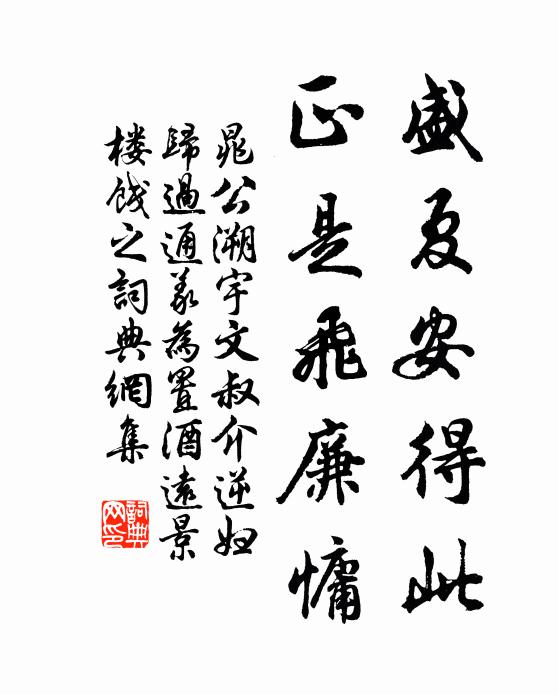 盛夏安得此
正是飛廉慵
晁公溯宇文叔介逆妇
歸過通義為置酒遠景
楼餞之詞典網集
詞典网印